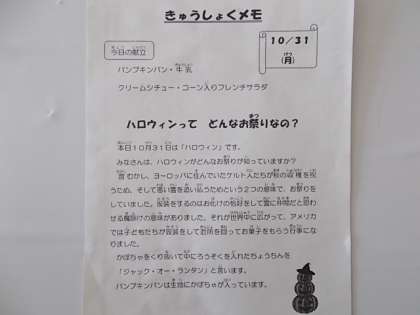 きゅうしょくメモ
10/31
(月)
今日の献立
パンプキンパン・牛乳
クリームシチュー・コーン入りフレンチサラダ
ハロウィンって どんなお祭りなの?
本日10月31日は「ハロウィン」です。
みなさんは、ハロウィンがどんなお祭りか知っていますか?
昔むかし、ヨーロッパに住んでいたケルト人たちが秋の収穫を祝
うため、そして悪い霊を追い払うためという2つの意味で、お祭りを
していました。仮装をするのはお化けの格好をして霊に仲間だと思わ
せる魔除けの意味がありました。それが世界中に広がって、アメリカ
では子どもたちが仮装をして近所を回ってお菓子をもらう行事にな
りました。
かぼちゃをくり抜いて中にろうそくを入れたちょうちんを
「ジャック・オー・ランタン」と言います。
パンプキンパンは生地にかぼちゃが入っています。